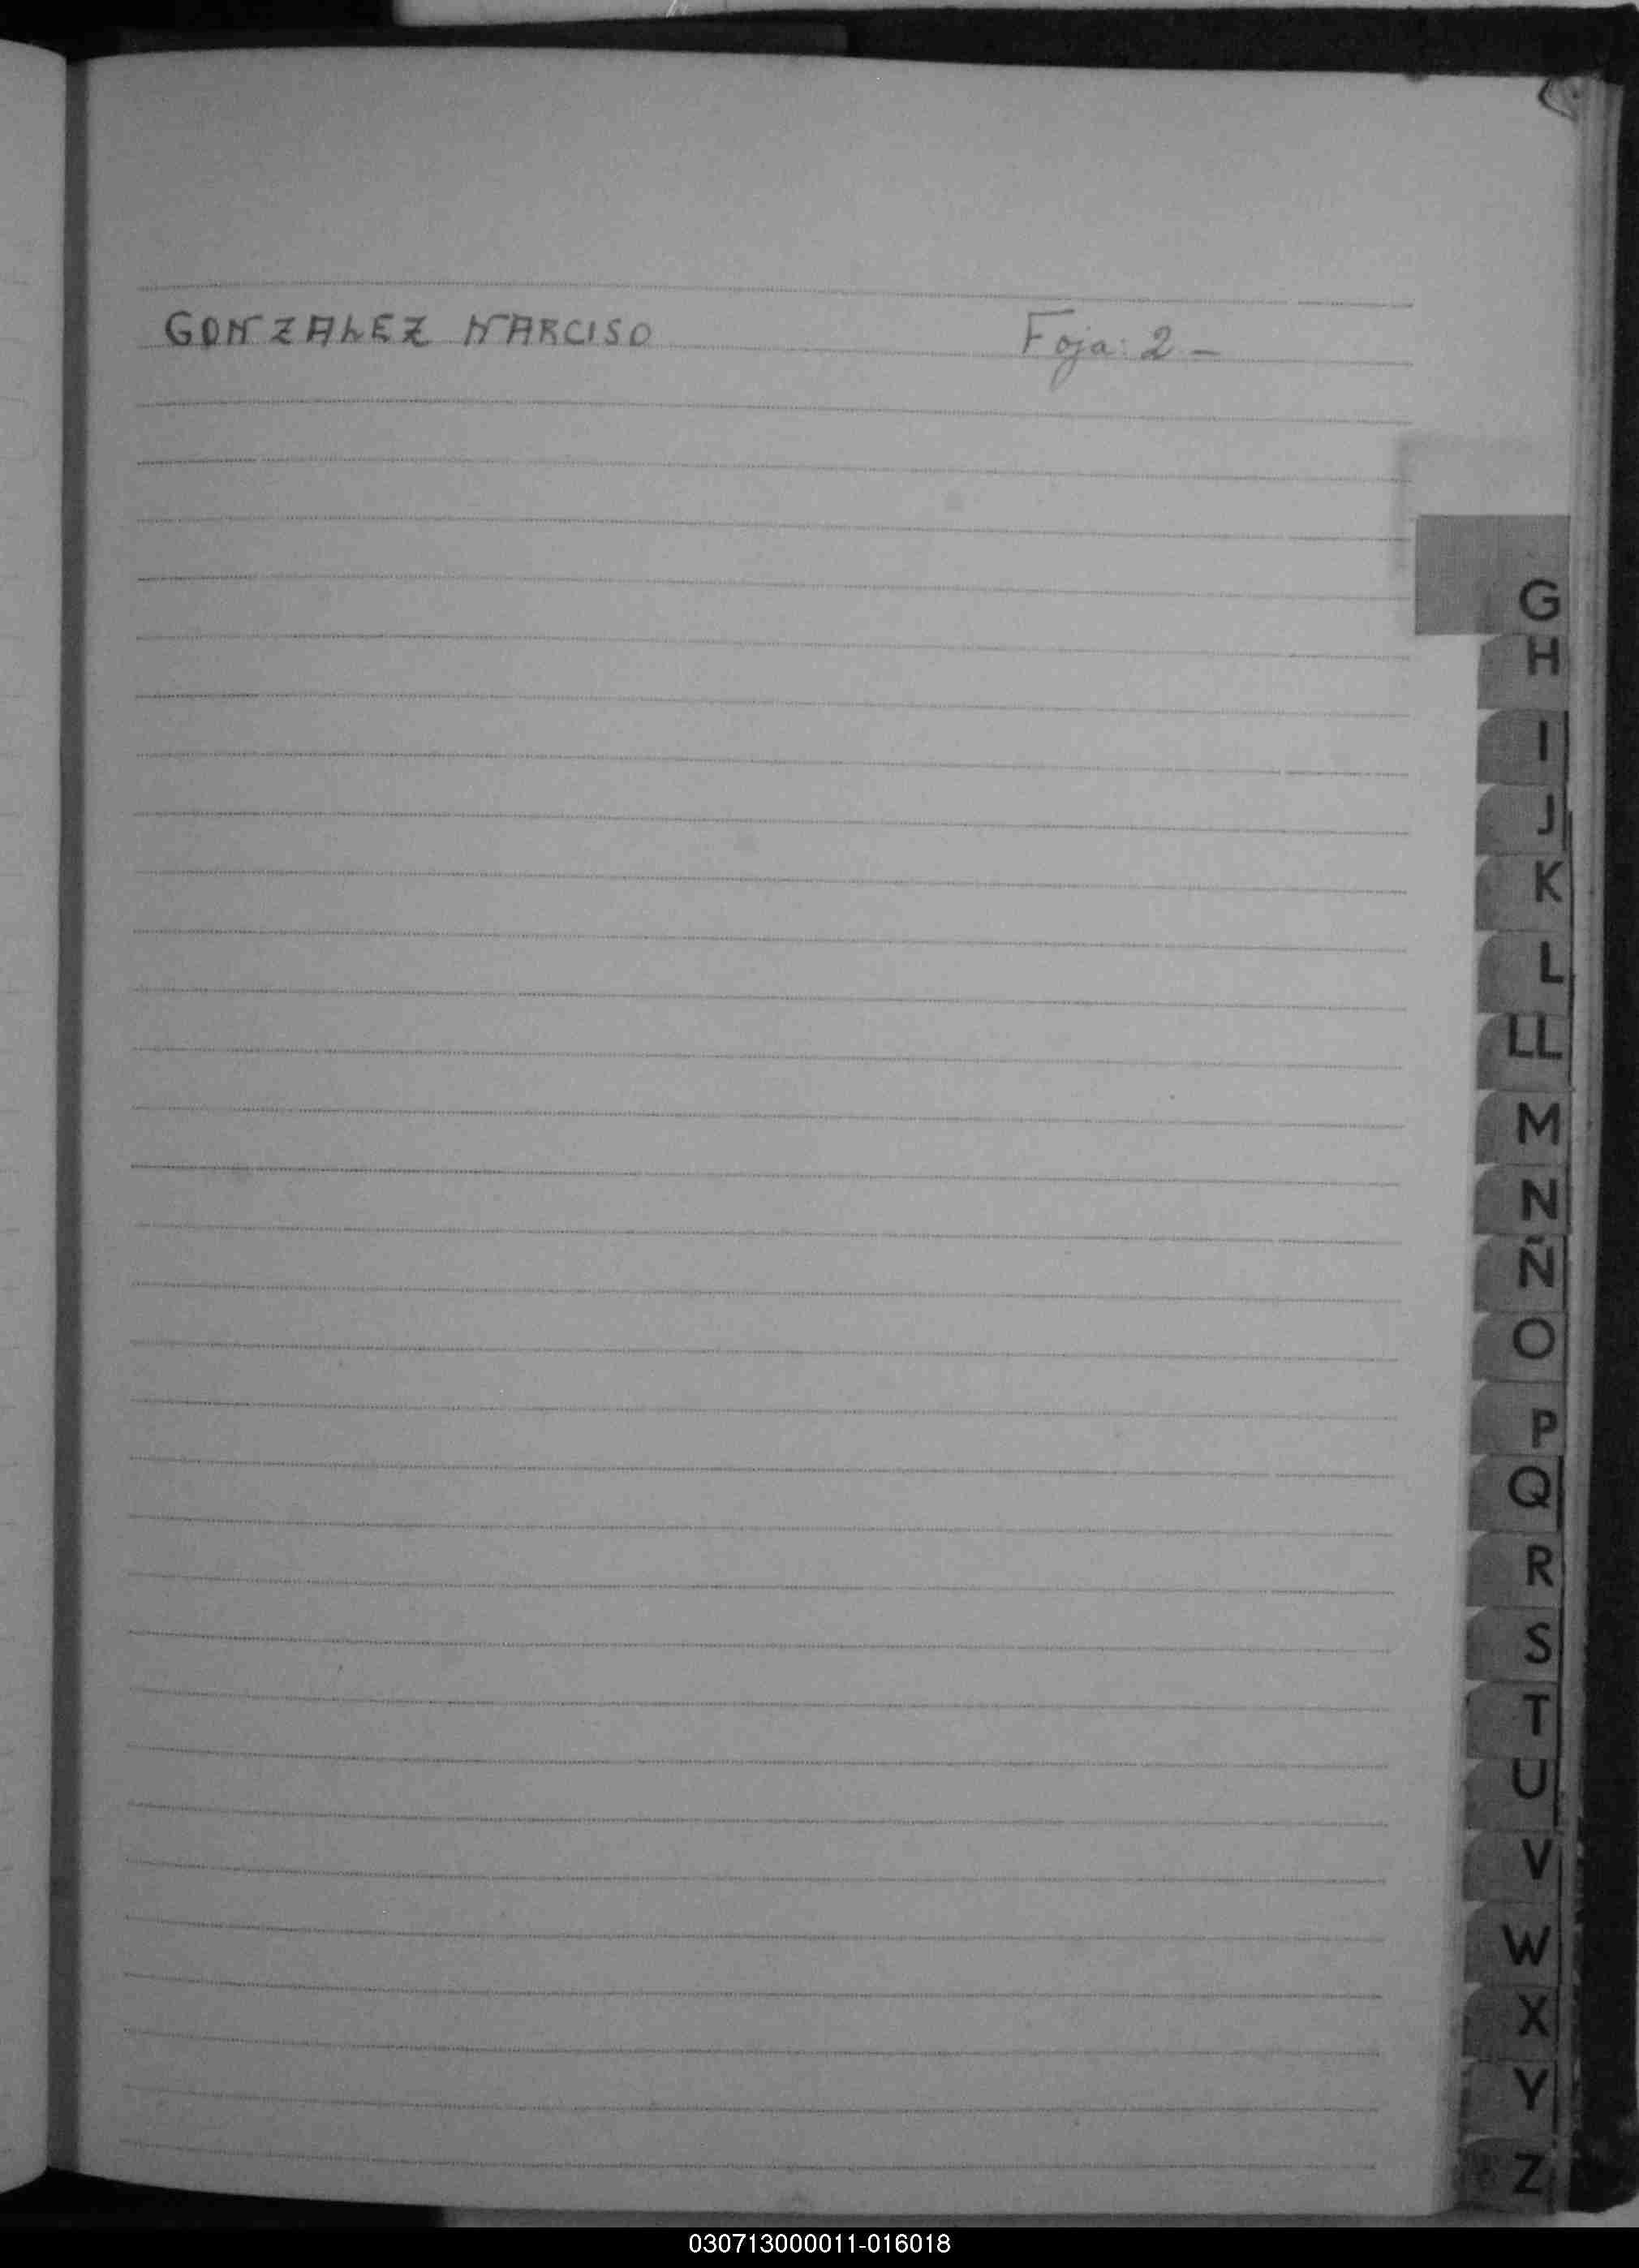 GONZALEZ NARCISO Foja: 2 -
G
H
I
J
K
L
LL
M
N
Ñ
O
P
Q
R
S
T
U
V
W
X
Y
Z
030713000011-016018